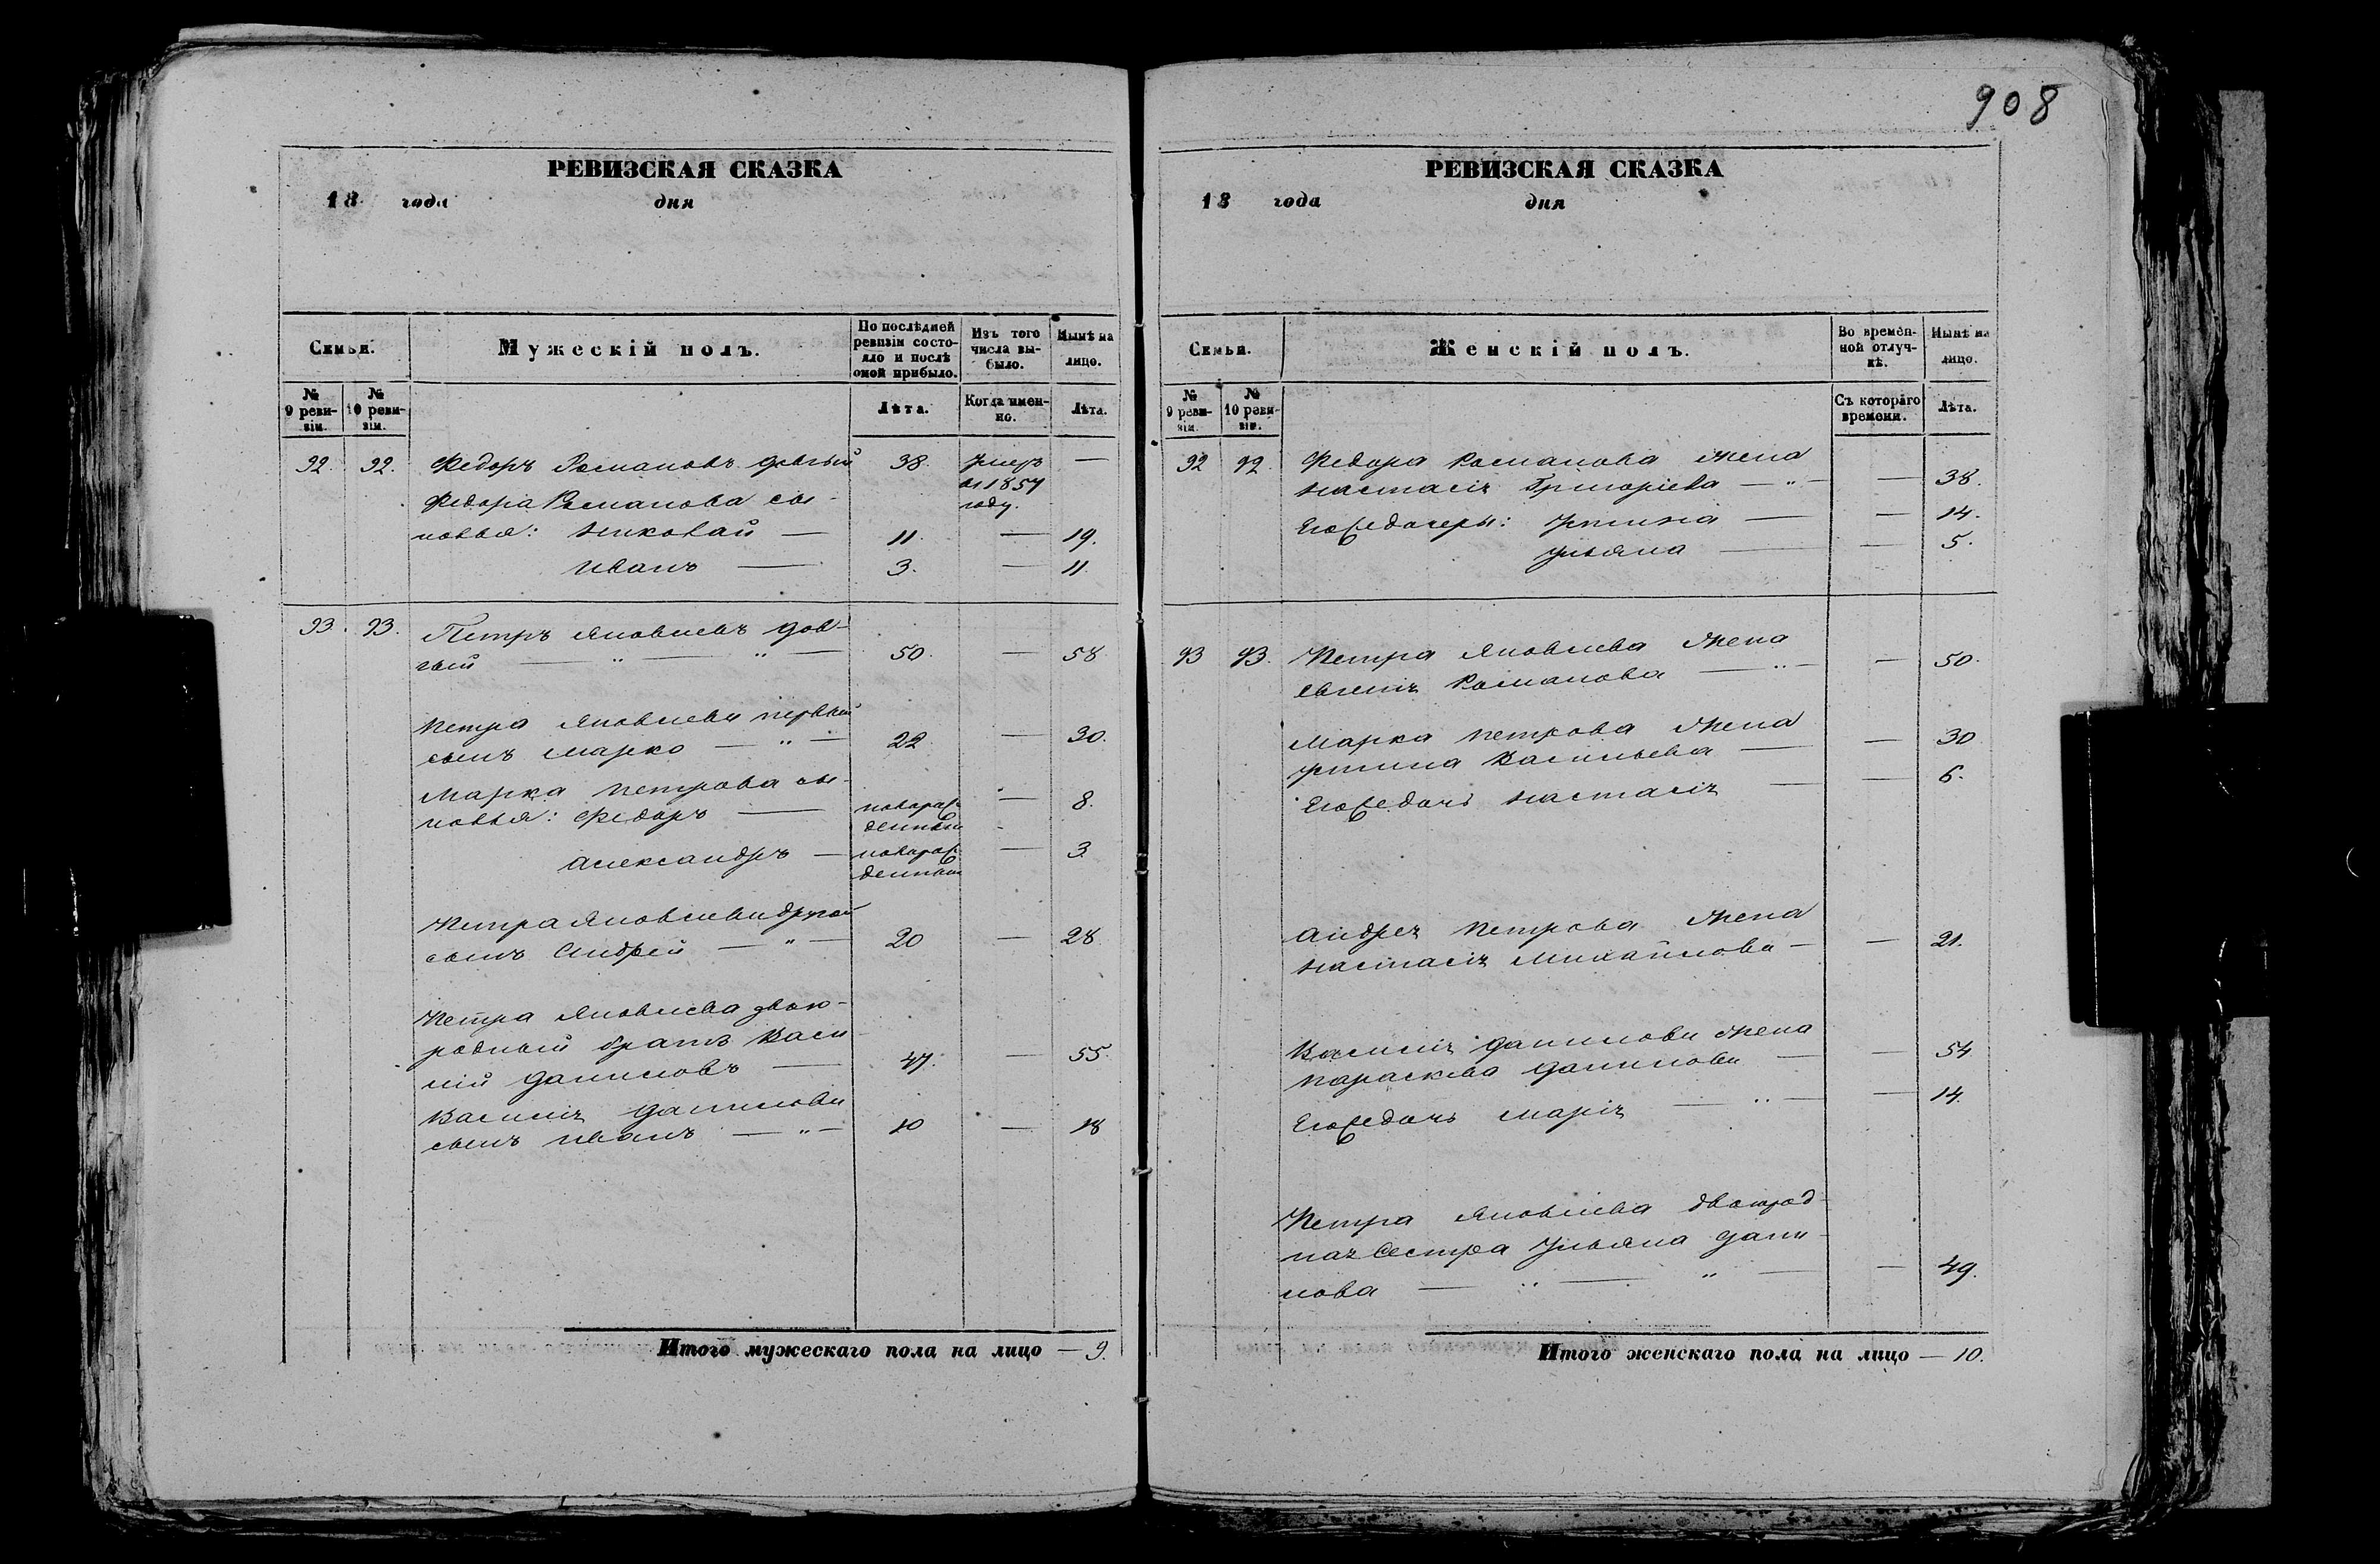 908
РЕВИЗСКАЯ СКАЗКА
18 года дня
Семьи. Мужескій полъ. По послѣдней ревизіи состояло и послѣ оной прибыло. Изъ того числа выбыло. Нынѣ на лицо.
№ 9 ревизіи. № 10 ревизіи. Лѣта. Когда именно. Лѣта.
92. 92. Федоръ Романовъ Довгый 38. умеръ —
въ 1854
Федора Романова сы- году.
новья: Николай — 11. — 19.
Иванъ — 3. — 11.
93. 93. Петръ Яковлевъ Дов-
гый — " — " — 50. — 58
Петра Яковлева первый
сынъ Марко — " — 22 — 30.
Марка Петрова сы-
новья: Федоръ — новорож- — 8.
денный
Александръ — новорож- — 3.
денный
Петра Яковлева другой
сынъ Андрей — " — 20 — 28
Петра Яковлева двою-
родный братъ Васи-
лій Даниловъ — 47. — 55.
Василія Данилова
сынъ Иванъ — " — 10 — 18
Итого мужескаго пола на лицо — 9.
РЕВИЗСКАЯ СКАЗКА
18 года дня
Семьи. Женскій полъ. Во временной отлучкѣ. Нынѣ на лицо.
№ 9 ревизіи. № 10 ревизіи. Съ котораго времени. Лѣта.
92 92. Федора Романова жена
Настасія Григоріева — " — — 38.
Его же дочери: Устинія — — 14.
Ульяна — — 5.
93 93. Петра Яковлева жена
Романова — " — — 50.
Марка Петрова жена
Устина Васильева — — 30
Его же дочь Настасія — — 6.
Андрея Петрова жена
Настасія Михайлова — — 21.
Василія Данилова жена
Параскева Данилова — — 54
Его же дочь Марія — " — — 14.
Петра Яковлева двоюрод-
ная Сестра Ульяна Дани-
лова — " — " — — 49.
Итого женскаго пола на лицо — 10.